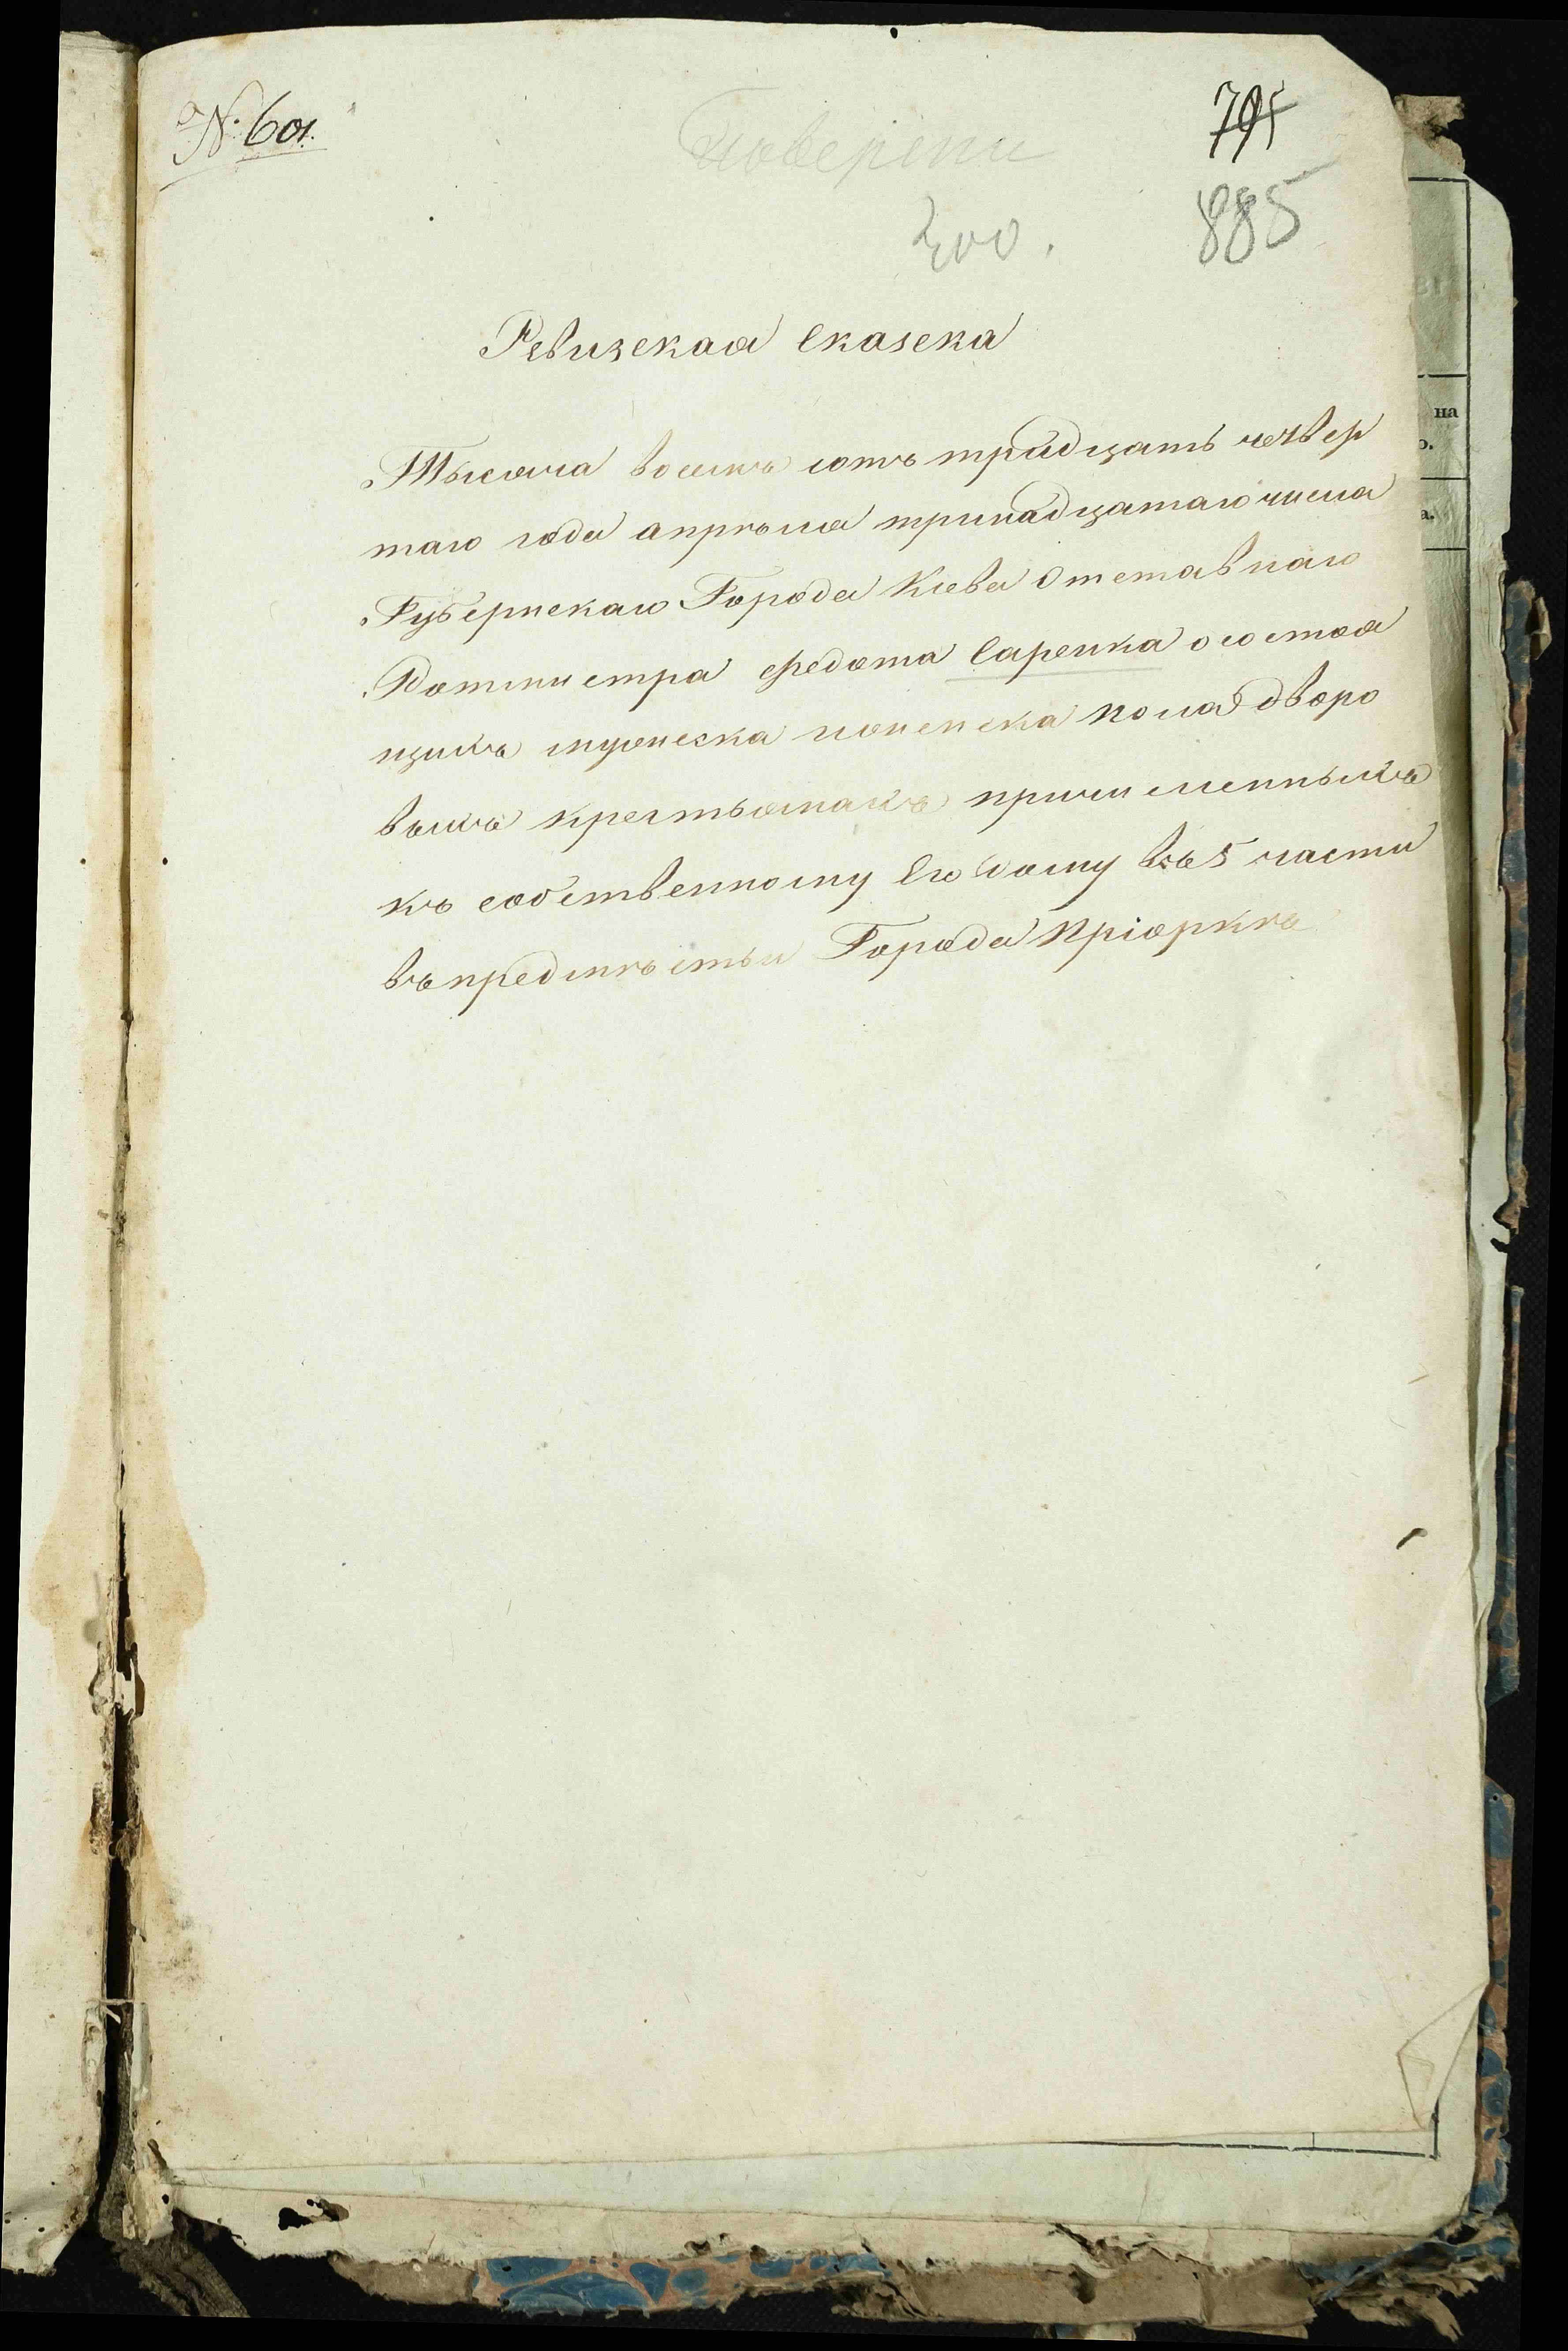 № 601.
поверены
795
200.
885
Ревизская сказска
Тысяча восемъ сотъ тридцать четвер
таго года апрѣля тринадцатаго числа
Губернскаго Города Киева Отставнаго
Ротмистра Федота Саренка о состоя
щихъ мужеска и женска пола дворо
выхъ крестьянахъ причисленныхъ
къ собственному Его дому въ 5 части
въ предмѣстьи Города Пріоркѣ
на
о.
а.